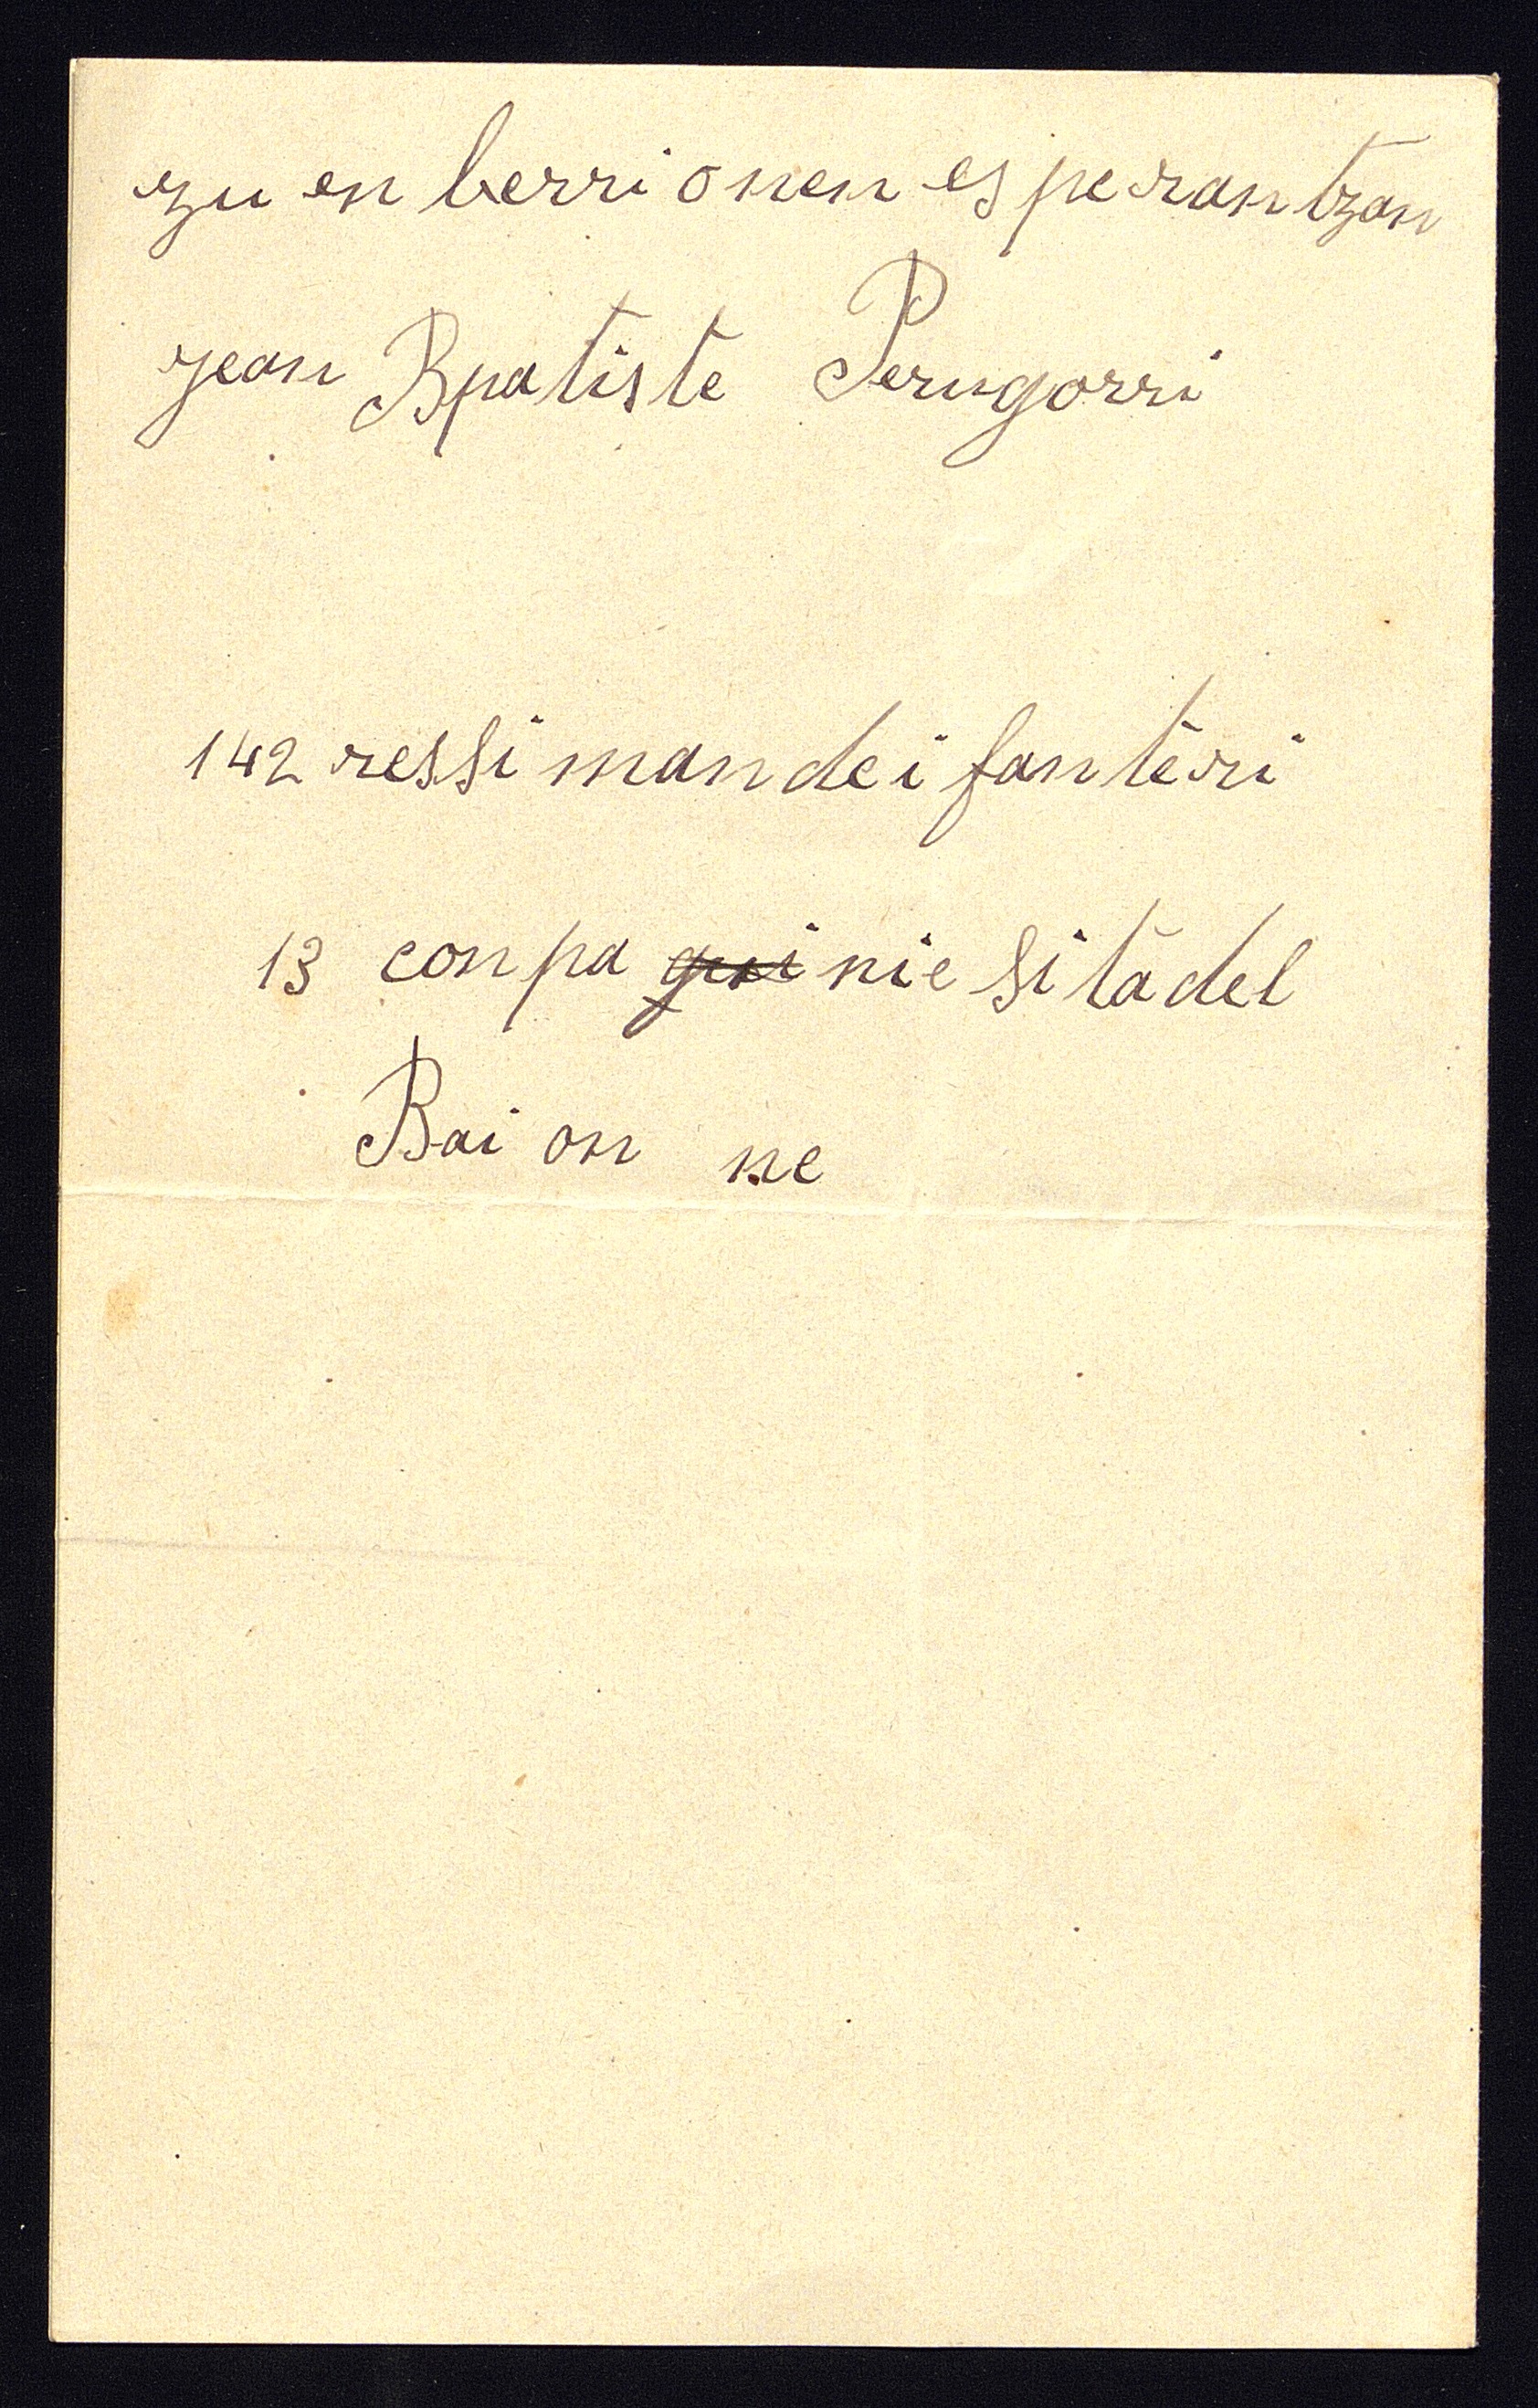 zu en berri onen esperantzan
jean Bpatiste Perugorri
142 ressi mande i fanteri
13 conpa gni nie sitadel
Bai on ne